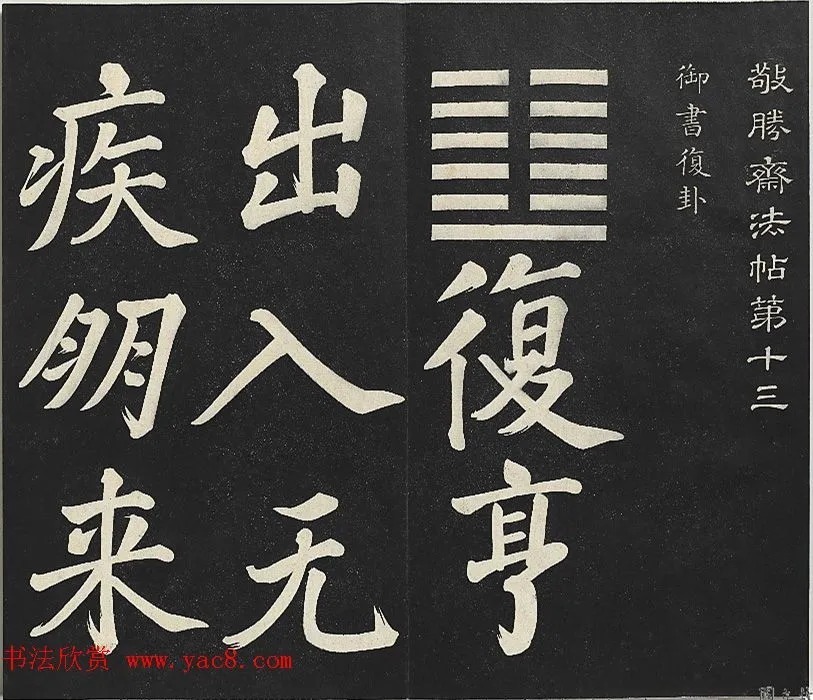 敬勝齋法帖第十三
御書復卦
䷗復亨
出入无
疾朋来
书法欣赏 www.yac8.com